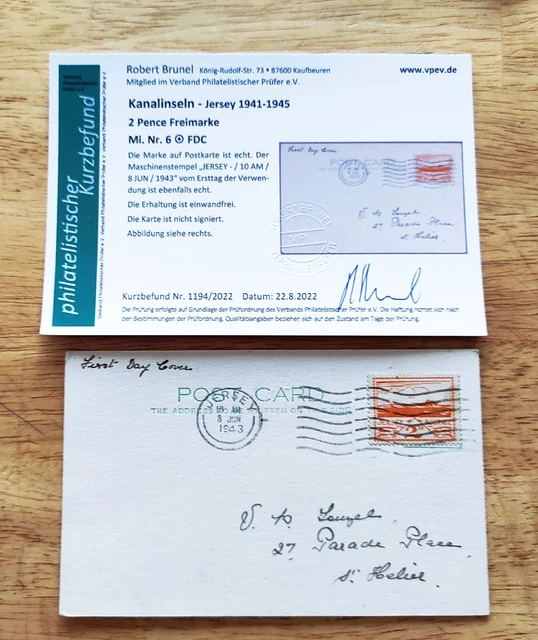 philatelistischer
Kurzbefund
Robert Brunel König-Rudolf-Str. 73 • 87600 Kaufbeuren
www.vpev.de
Mitglied im Verband Philatelistischer Prüfer e.V.
Kanalinseln - Jersey 1941-1945
2 Pence Freimarke
Mi. Nr. 6 ⊙ FDC
Die Marke auf Postkarte ist echt. Der
Maschinenstempel „JERSEY - / 10 AM /
8 JUN / 1943“ vom Ersttag der Verwen-
dung ist ebenfalls echt.
Die Erhaltung ist einwandfrei.
Die Karte ist nicht signiert.
Abbildung siehe rechts.
First Day Cover
POST CARD
27 Parade Place
St. Helier.
Kurzbefund Nr. 1194/2022 Datum: 22.8.2022
Die Prüfung erfolgte auf Grundlage der Prüfordnung des Verbands Philatelistischer Prüfer e.V. Die Haftung richtet sich nach
den Bestimmungen der Prüfordnung. Qualitätsangaben beziehen sich auf den Zustand am Tage der Prüfung.
First Day Cover
POST CARD
THE ADDRESS TO BE WRITTEN ON THIS SIDE
JERSEY
10 AM
8 JUN
1943
27 Parade Place,
St. Helier.